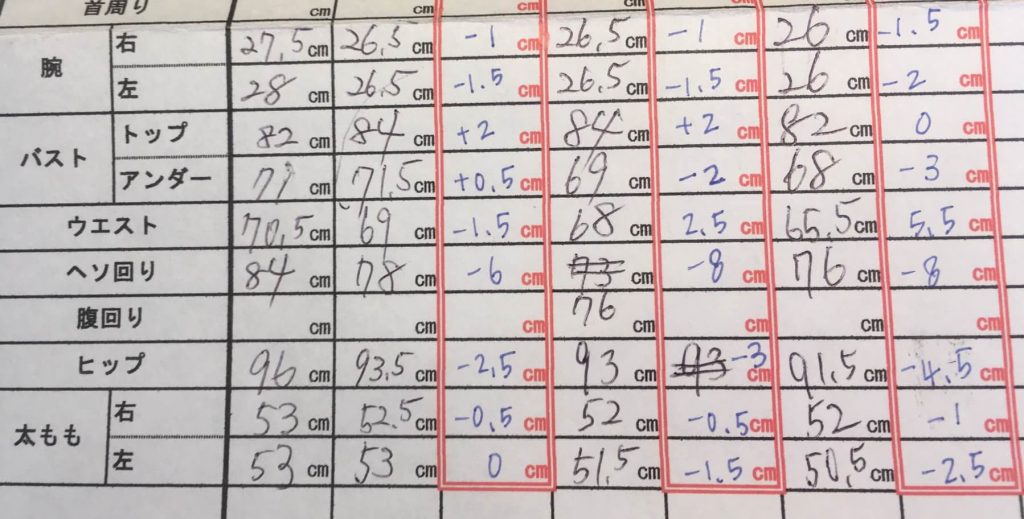 首周り cm cm cm cm cm
腕 右 27.5cm 26.5cm -1cm 26.5cm -1cm 26cm -1.5cm
左 28cm 26.5cm -1.5cm 26.5cm -1.5cm 26cm -2cm
バスト トップ 82cm 84cm +2cm 84cm +2cm 82cm 0cm
アンダー 71cm 71.5cm +0.5cm 69cm -2cm 68cm -3cm
ウエスト 70.5cm 69cm -1.5cm 68cm 2.5cm 65.5cm 5.5cm
ヘソ回り 84cm 78cm -6cm 73cm -8cm 76cm -8cm
腹回り cm cm cm 76cm cm cm cm
ヒップ 96cm 93.5cm -2.5cm 93cm 93 -3cm 91.5cm -4.5cm
太もも 右 53cm 52.5cm -0.5cm 52cm -0.5cm 52cm -1cm
左 53cm 53cm 0cm 51.5cm -1.5cm 50.5cm -2.5cm